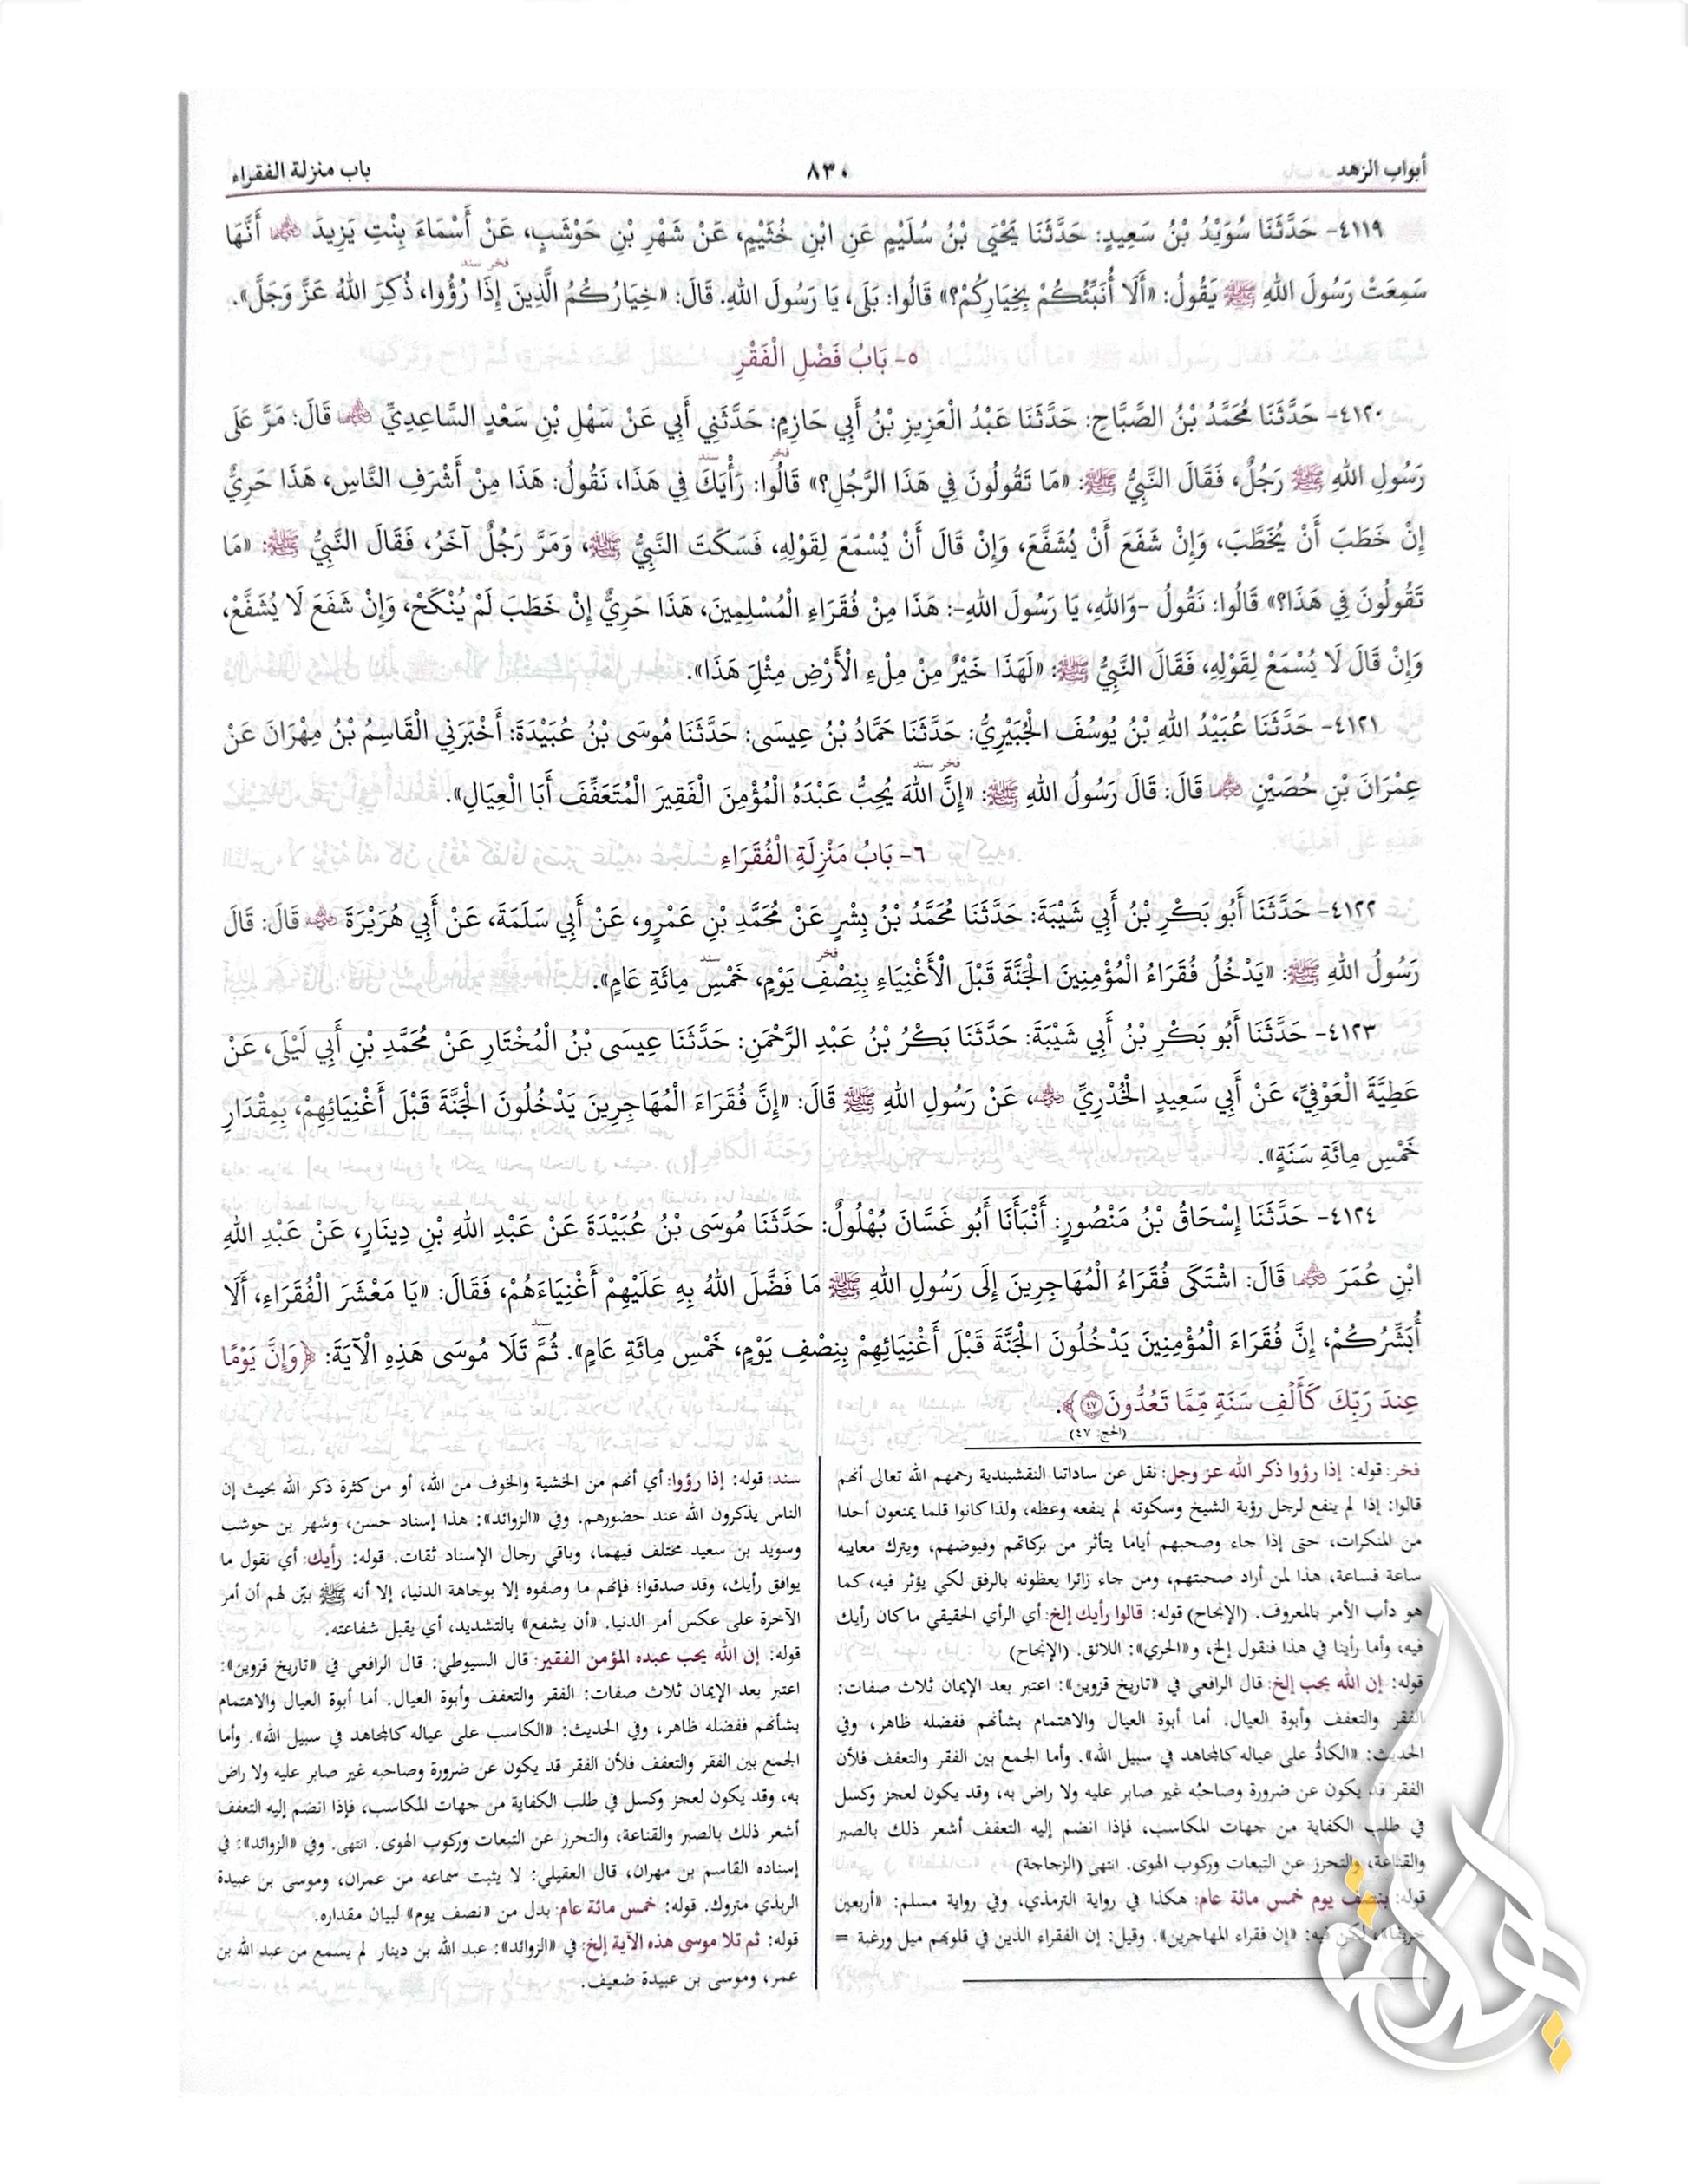 أبواب الزهد ٨٣٠ باب منزلة الفقراء
٤١١٩- حَدَّثَنَا سُوَيْدُ بْنُ سَعِيدٍ: حَدَّثَنَا يَحْيَى بْنُ سُلَيْمٍ عَنِ ابْنِ خُثَيْمٍ، عَنْ شَهْرِ بْنِ حَوْشَبٍ، عَنْ أَسْمَاءَ بِنْتِ يَزِيدَ أَنَّهَا
فخر سند
سَمِعَتْ رَسُولَ اللهِ ﷺ يَقُولُ: «أَلَا أُنَبِّئُكُمْ بِخِيَارِكُمْ؟» قَالُوا: بَلَى، يَا رَسُولَ اللهِ. قَالَ: «خِيَارُكُمُ الَّذِينَ إِذَا رُؤُوا، ذُكِرَ اللهُ عَزَّ وَجَلَّ».
٥- بَابُ فَضْلِ الْفَقْرِ
٤١٢٠- حَدَّثَنَا مُحَمَّدُ بْنُ الصَّبَّاحِ: حَدَّثَنَا عَبْدُ الْعَزِيزِ بْنُ أَبِي حَازِمٍ: حَدَّثَنِي أَبِي عَنْ سَهْلِ بْنِ سَعْدٍ السَّاعِدِيِّ قَالَ: مَرَّ عَلَى
فخر سند
رَسُولِ اللهِ ﷺ رَجُلٌ، فَقَالَ النَّبِيُّ ﷺ: «مَا تَقُولُونَ فِي هَذَا الرَّجُلِ؟» قَالُوا: رَأْيَكَ فِي هَذَا، نَقُولُ: هَذَا مِنْ أَشْرَفِ النَّاسِ، هَذَا حَرِيٌّ
إِنْ خَطَبَ أَنْ يُخَطَّبَ، وَإِنْ شَفَعَ أَنْ يُشَفَّعَ، وَإِنْ قَالَ أَنْ يُسْمَعَ لِقَوْلِهِ، فَسَكَتَ النَّبِيُّ ﷺ، وَمَرَّ رَجُلٌ آخَرُ، فَقَالَ النَّبِيُّ ﷺ: «مَا
تَقُولُونَ فِي هَذَا؟» قَالُوا: نَقُولُ -وَاللهِ، يَا رَسُولَ اللهِ-: هَذَا مِنْ فُقَرَاءِ الْمُسْلِمِينَ، هَذَا حَرِيٌّ إِنْ خَطَبَ لَمْ يُنْكَحْ، وَإِنْ شَفَعَ لَا يُشَفَّعْ،
وَإِنْ قَالَ لَا يُسْمَعْ لِقَوْلِهِ، فَقَالَ النَّبِيُّ ﷺ: «لَهَذَا خَيْرٌ مِنْ مِلْءِ الْأَرْضِ مِثْلَ هَذَا».
٤١٢١- حَدَّثَنَا عُبَيْدُ اللهِ بْنُ يُوسُفَ الْجُبَيْرِيُّ: حَدَّثَنَا حَمَّادُ بْنُ عِيسَى: حَدَّثَنَا مُوسَى بْنُ عُبَيْدَةَ: أَخْبَرَنِي الْقَاسِمُ بْنُ مِهْرَانَ عَنْ
فخر سند
عِمْرَانَ بْنِ حُصَيْنٍ قَالَ: قَالَ رَسُولُ اللهِ ﷺ: «إِنَّ اللهَ يُحِبُّ عَبْدَهُ الْمُؤْمِنَ الْفَقِيرَ الْمُتَعَفِّفَ أَبَا الْعِيَالِ».
٦- بَابُ مَنْزِلَةِ الْفُقَرَاءِ
٤١٢٢- حَدَّثَنَا أَبُو بَكْرِ بْنُ أَبِي شَيْبَةَ: حَدَّثَنَا مُحَمَّدُ بْنُ بِشْرٍ عَنْ مُحَمَّدِ بْنِ عَمْرٍو، عَنْ أَبِي سَلَمَةَ، عَنْ أَبِي هُرَيْرَةَ قَالَ: قَالَ
فخر سند
رَسُولُ اللهِ ﷺ: «يَدْخُلُ فُقَرَاءُ الْمُؤْمِنِينَ الْجَنَّةَ قَبْلَ الْأَغْنِيَاءِ بِنِصْفِ يَوْمٍ، خَمْسِ مِائَةِ عَامٍ».
٤١٢٣- حَدَّثَنَا أَبُو بَكْرِ بْنُ أَبِي شَيْبَةَ: حَدَّثَنَا بَكْرُ بْنُ عَبْدِ الرَّحْمَنِ: حَدَّثَنَا عِيسَى بْنُ الْمُخْتَارِ عَنْ مُحَمَّدِ بْنِ أَبِي لَيْلَى، عَنْ
عَطِيَّةَ الْعَوْفِيِّ، عَنْ أَبِي سَعِيدٍ الْخُدْرِيِّ، عَنْ رَسُولِ اللهِ ﷺ قَالَ: «إِنَّ فُقَرَاءَ الْمُهَاجِرِينَ يَدْخُلُونَ الْجَنَّةَ قَبْلَ أَغْنِيَائِهِمْ، بِمِقْدَارِ
خَمْسِ مِائَةِ سَنَةٍ».
٤١٢٤- حَدَّثَنَا إِسْحَاقُ بْنُ مَنْصُورٍ: أَنْبَأَنَا أَبُو غَسَّانَ بُهْلُولٌ: حَدَّثَنَا مُوسَى بْنُ عُبَيْدَةَ عَنْ عَبْدِ اللهِ بْنِ دِينَارٍ، عَنْ عَبْدِ اللهِ
ابْنِ عُمَرَ قَالَ: اشْتَكَى فُقَرَاءُ الْمُهَاجِرِينَ إِلَى رَسُولِ اللهِ ﷺ مَا فَضَّلَ اللهُ بِهِ عَلَيْهِمْ أَغْنِيَاءَهُمْ، فَقَالَ: «يَا مَعْشَرَ الْفُقَرَاءِ، أَلَا
سند
أُبَشِّرُكُمْ، إِنَّ فُقَرَاءَ الْمُؤْمِنِينَ يَدْخُلُونَ الْجَنَّةَ قَبْلَ أَغْنِيَائِهِمْ بِنِصْفِ يَوْمٍ، خَمْسِ مِائَةِ عَامٍ». ثُمَّ تَلَا مُوسَى هَذِهِ الْآيَةَ: ﴿وَإِنَّ يَوْمًا
عِندَ رَبِّكَ كَأَلْفِ سَنَةٍ مِّمَّا تَعُدُّونَ ٤٧﴾.
(الحج: ٤٧)
فخر: قوله: إذا رؤوا ذكر الله عز وجل: نقل عن ساداتنا النقشبندية رحمهم الله تعالى أنهم
قالوا: إذا لم ينفع لرجل رؤية الشيخ وسكوته لم ينفعه وعظه، ولذا كانوا قلما يمنعون أحدا
من المنكرات، حتى إذا جاء وصحبهم أياما يتأثر من بركاتهم وفيوضهم، ويترك معايبه
ساعة فساعة، هذا لمن أراد صحبتهم، ومن جاء زائرا يعظونه بالرفق لكي يؤثر فيه، كما
هو دأب الأمر بالمعروف. (الإنجاح) قوله: قالوا رأيك إلخ: أي الرأي الحقيقي ما كان رأيك
فيه، وأما رأينا في هذا فنقول إلخ، و«الحري»: اللائق. (الإنجاح)
قوله: إن الله يحب إلخ: قال الرافعي في «تاريخ قزوين»: اعتبر بعد الإيمان ثلاث صفات:
الفقر والتعفف وأبوة العيال. أما أبوة العيال والاهتمام بشأنهم ففضله ظاهر، وفي
الحديث: «الكادُّ على عياله كالمجاهد في سبيل الله». وأما الجمع بين الفقر والتعفف فلأن
الفقر قد يكون عن ضرورة وصاحبُه غير صابر عليه ولا راض به، وقد يكون لعجز وكسل
في طلب الكفاية من جهات المكاسب، فإذا انضم إليه التعفف أشعر ذلك بالصبر
والقناعة، والتحرز عن التبعات وركوب الهوى. انتهى (الزجاجة)
قوله: بنصف يوم خمس مائة عام: هكذا في رواية الترمذي، وفي رواية مسلم: «أربعين
خريفا»، لكن فيه: «إن فقراء المهاجرين». وقيل: إن الفقراء الذين في قلوبهم ميل ورغبة =
سند: قوله: إذا رؤوا: أي أنهم من الخشية والخوف من الله، أو من كثرة ذكر الله بحيث إن
الناس يذكرون الله عند حضورهم. وفي «الزوائد»: هذا إسناد حسن، وشهر بن حوشب
وسويد بن سعيد مختلف فيهما، وباقي رجال الإسناد ثقات. قوله: رأيك: أي نقول ما
يوافق رأيك، وقد صدقوا؛ فإنهم ما وصفوه إلا بوجاهة الدنيا، إلا أنه ﷺ بيّن لهم أن أمر
الآخرة على عكس أمر الدنيا. «أن يشفع» بالتشديد، أي يقبل شفاعته.
قوله: إن الله يحب عبده المؤمن الفقير: قال السيوطي: قال الرافعي في «تاريخ قزوين»:
اعتبر بعد الإيمان ثلاث صفات: الفقر والتعفف وأبوة العيال. أما أبوة العيال والاهتمام
بشأنهم ففضله ظاهر، وفي الحديث: «الكاسب على عياله كالمجاهد في سبيل الله». وأما
الجمع بين الفقر والتعفف فلأن الفقر قد يكون عن ضرورة وصاحبه غير صابر عليه ولا راض
به، وقد يكون لعجز وكسل في طلب الكفاية من جهات المكاسب، فإذا انضم إليه التعفف
أشعر ذلك بالصبر والقناعة، والتحرز عن التبعات وركوب الهوى. انتهى. وفي «الزوائد»: في
إسناده القاسم بن مهران، قال العقيلي: لا يثبت سماعه من عمران، وموسى بن عبيدة
الربذي متروك. قوله: خمس مائة عام: بدل من «نصف يوم» لبيان مقداره.
قوله: ثم تلا موسى هذه الآية إلخ: في «الزوائد»: عبد الله بن دينار لم يسمع من عبد الله بن
عمر، وموسى بن عبيدة ضعيف.